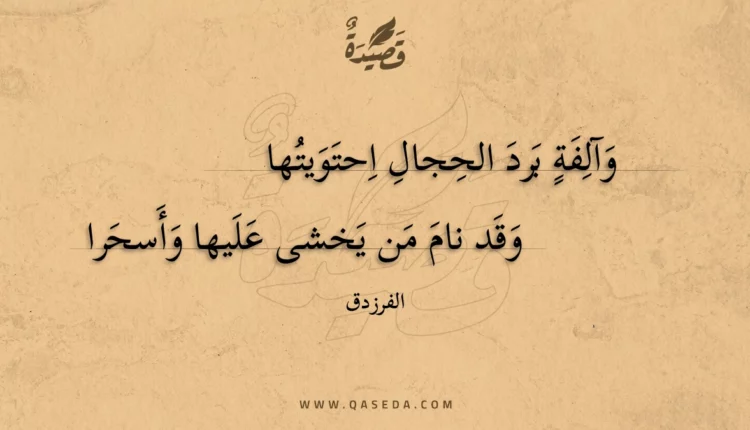 قَصِيدَةٌ
وَآلِفَةٍ بَردَ الحِجالِ اِحتَوَيتُها
وَقَد نامَ مَن يَخشى عَلَيها وَأَسحَرا
الفرزدق
WWW.QASEDA.COM